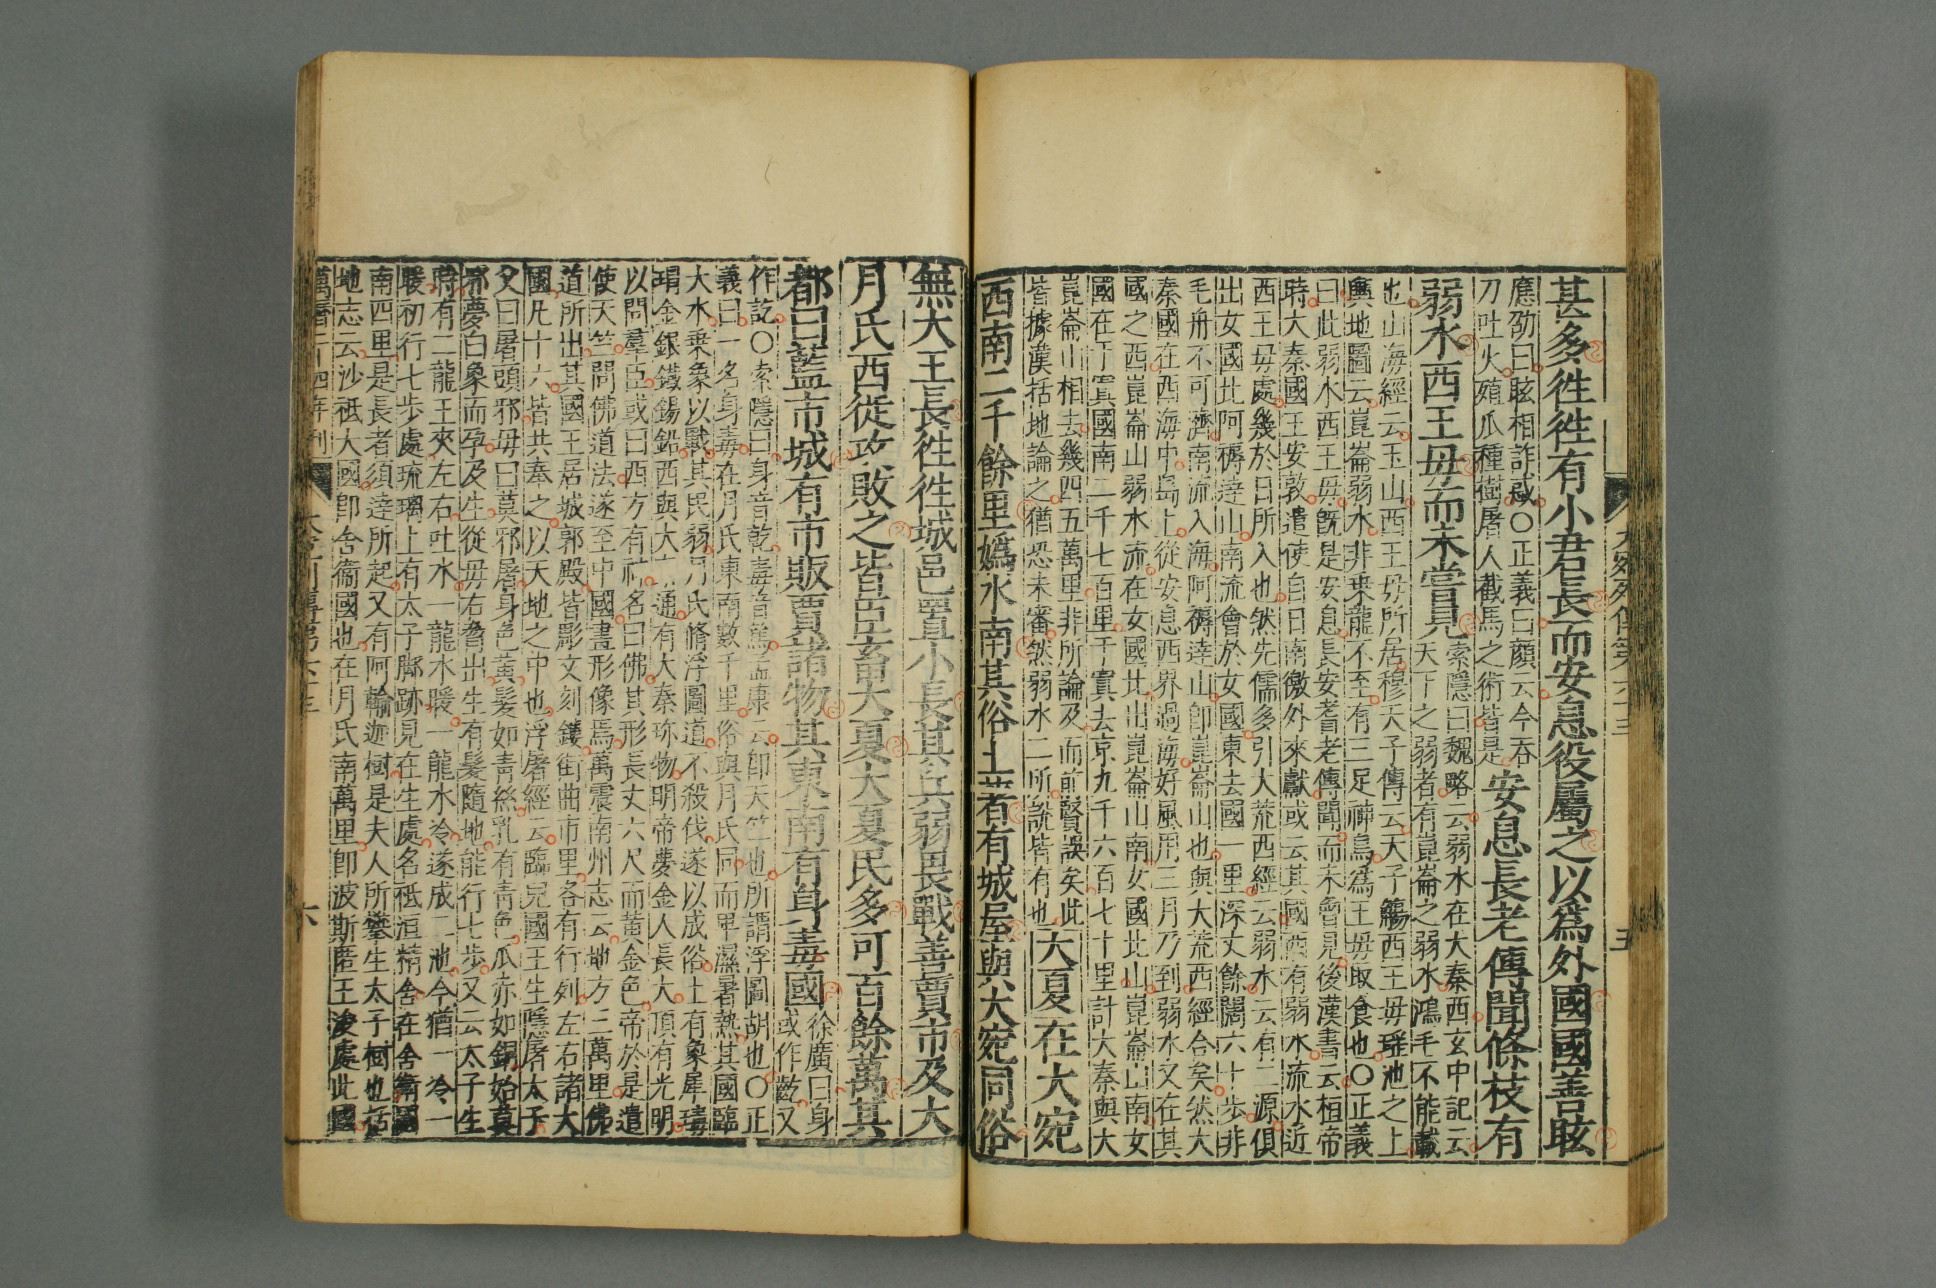 大宛列傳第六十三 五
甚多徃徃有小君長而安息役屬之以爲外國國善眩
應劭曰眩相詐惑○正義曰顏云今吞
刀吐火殖瓜種樹屠人截馬之術皆是
安息長老傳聞條枝有
弱水西王母而未嘗見
索隱曰魏略云弱水在大秦西玄中記云
天下之弱者有崑崙之弱水鴻毛不能載
也山海經云玉山西王母所居穆天子傳云天子觴西王母瑤池之上
輿地圖云崑崙弱水非乗龍不至有三足神鳥爲王母取食也○正義
曰此弱水西王母旣是安息長安耆老傳聞而未曾見後漢書云桓帝
時大秦國王安敦遣使自日南徼外來獻或云其國西有弱水流水近
西王母處幾於日所入也然先儒多引大荒西經云弱水云有二源俱
出女國北阿耨達山南流會於女國東去國一里深丈餘闊六十步非
毛舟不可濟南流入海阿耨達山卽崑崙山也與大荒西經合矣然大
秦國在西海中島上從安息西界過海好風用三月乃到弱水又在其
國之西崑崙山弱水流在女國北出崑崙山南女國北山崑崙山南女
國在于窴國南二千七百里于窴去京九千六百七十里計大秦與大
崑崙山相去幾四五萬里非所論及而前賢誤矣此
皆據漢括地論之猶恐未審然弱水二所說皆有也
大夏在大宛
西南二千餘里嬀水南其俗土著有城屋與大宛同俗
無大王長徃徃城邑置小長其兵弱畏戰善賈市及大
月氏西徙攻敗之皆臣畜大夏大夏民多可百餘萬其
都曰藍市城有市販賈諸物其東南有身毒國
徐廣曰身
或作乾又
作訖○索隱曰身音乾毒音篤孟康云卽天竺也所謂浮圖胡也○正
義曰一名身毒在月氏東南數千里俗與月氏同而卑濕暑熱其國臨
大水乗象以戰其民弱月氏脩浮圖道不殺伐遂以成俗土有象犀瑇
瑁金銀鐵錫鉛西與大秦通有大秦珍物明帝夢金人長大頂有光明
以問羣臣或曰西方有神名曰佛其形長丈六尺而黃金色帝於是遣
使天竺問佛道法遂至中國畫形像焉萬震南州志云地方三萬里佛
道所出其國王居城郭殿皆彫文刻鏤街曲市里各有行列左右諸大
國凡十六皆共奉之以天地之中也浮屠經云臨兒國王生隱屠太子
父曰屠頭邪母曰莫邪屠身色黃髮如靑絲乳有靑色爪亦如銅始莫
邪夢白象而孕及生從母右脅出生有髮隨地能行七步又云太子生
時有二龍王夾左右吐水一龍水暖一龍水冷遂成二池今猶一冷一
暖初行七步處琉璃上有太子脚跡見在生處名祇洹精舍在舍衞國
南四里是長者須達所起又有阿輸迦樹是夫人所攀生太子樹也括
地志云沙祇大國卽舍衞國也在月氏南萬里卽波斯匿王治處此國
萬曆二十四年刊 大宛列傳第六十三 六